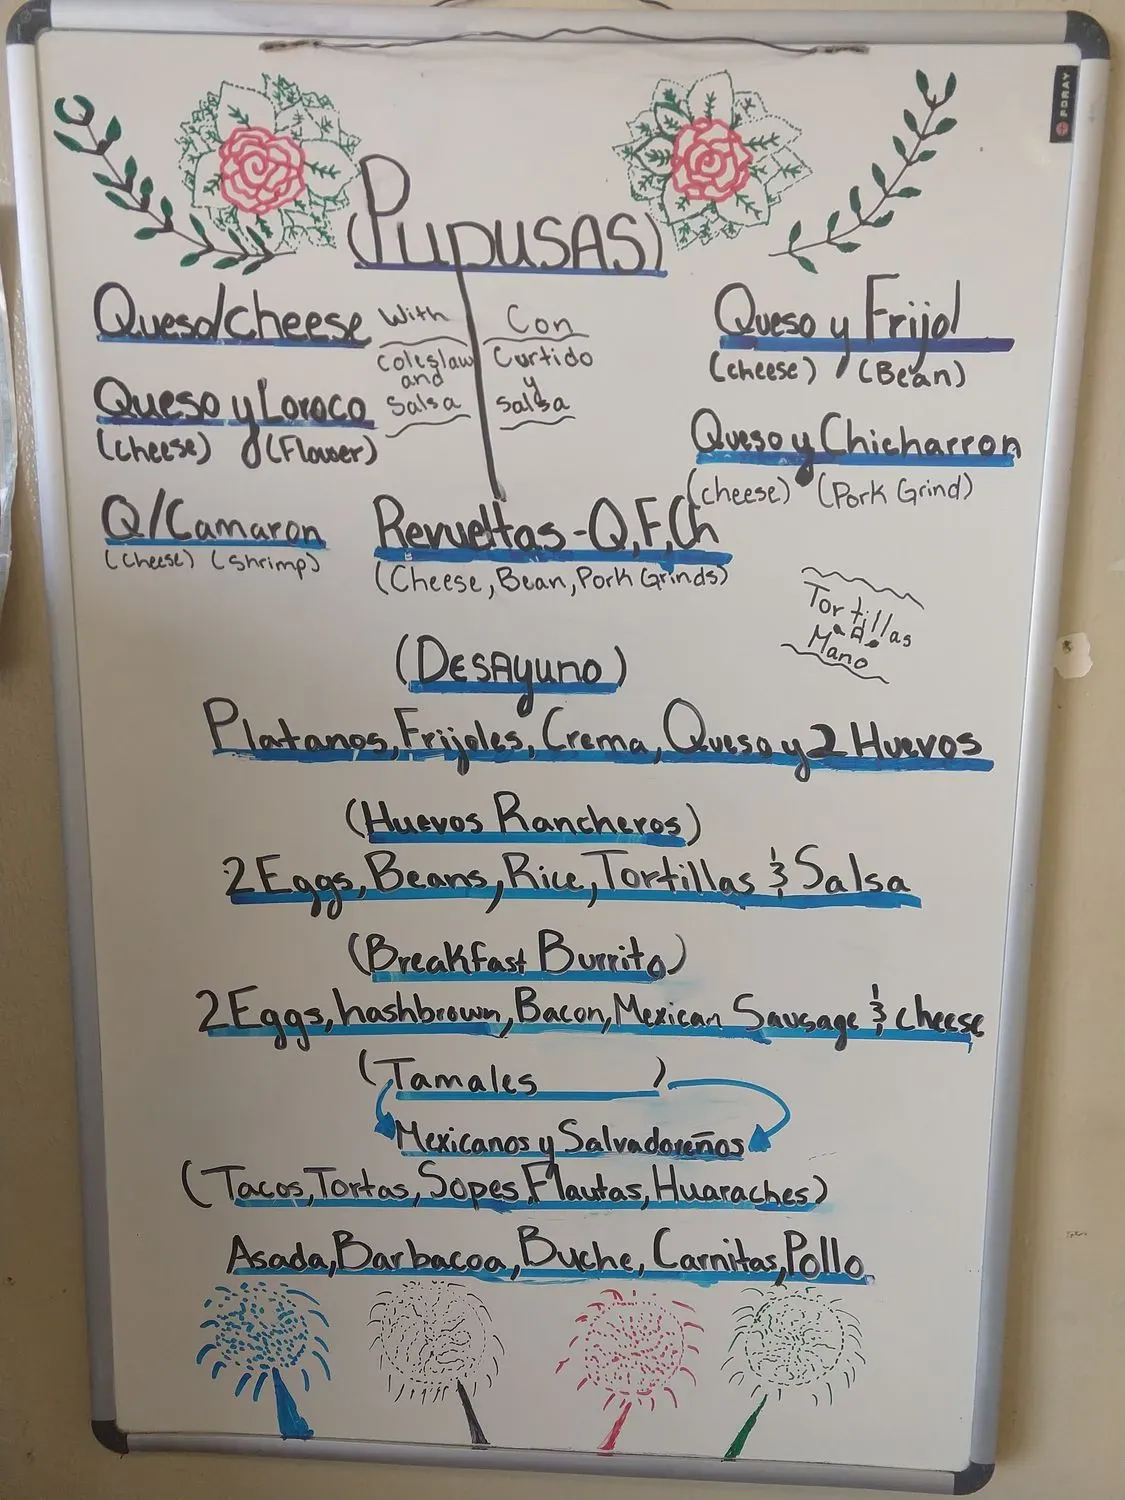 FORAY
(Pupusas)
Queso/cheese
With
coleslaw
and
Salsa
Con
Curtido
y
salsa
Queso y Frijol
(cheese) (Bean)
Queso y Loroco
(cheese) (Flower)
Queso y Chicharron
(cheese) (Pork Grind)
Q/Camaron
(cheese) (shrimp)
Revueltas-Q,F,Ch
(Cheese, Bean, Pork Grinds)
Tortillas
a
Mano
(Desayuno)
Platanos, Frijoles, Crema, Queso y 2 Huevos
(Huevos Rancheros)
2 Eggs, Beans, Rice, Tortillas & Salsa
(Breakfast Burrito)
2 Eggs, hashbrown, Bacon, Mexican Sausage & cheese
(Tamales )
Mexicanos y Salvadoreños
(Tacos, Tortas, Sopes, Flautas, Huaraches)
Asada, Barbacoa, Buche, Carnitas, Pollo